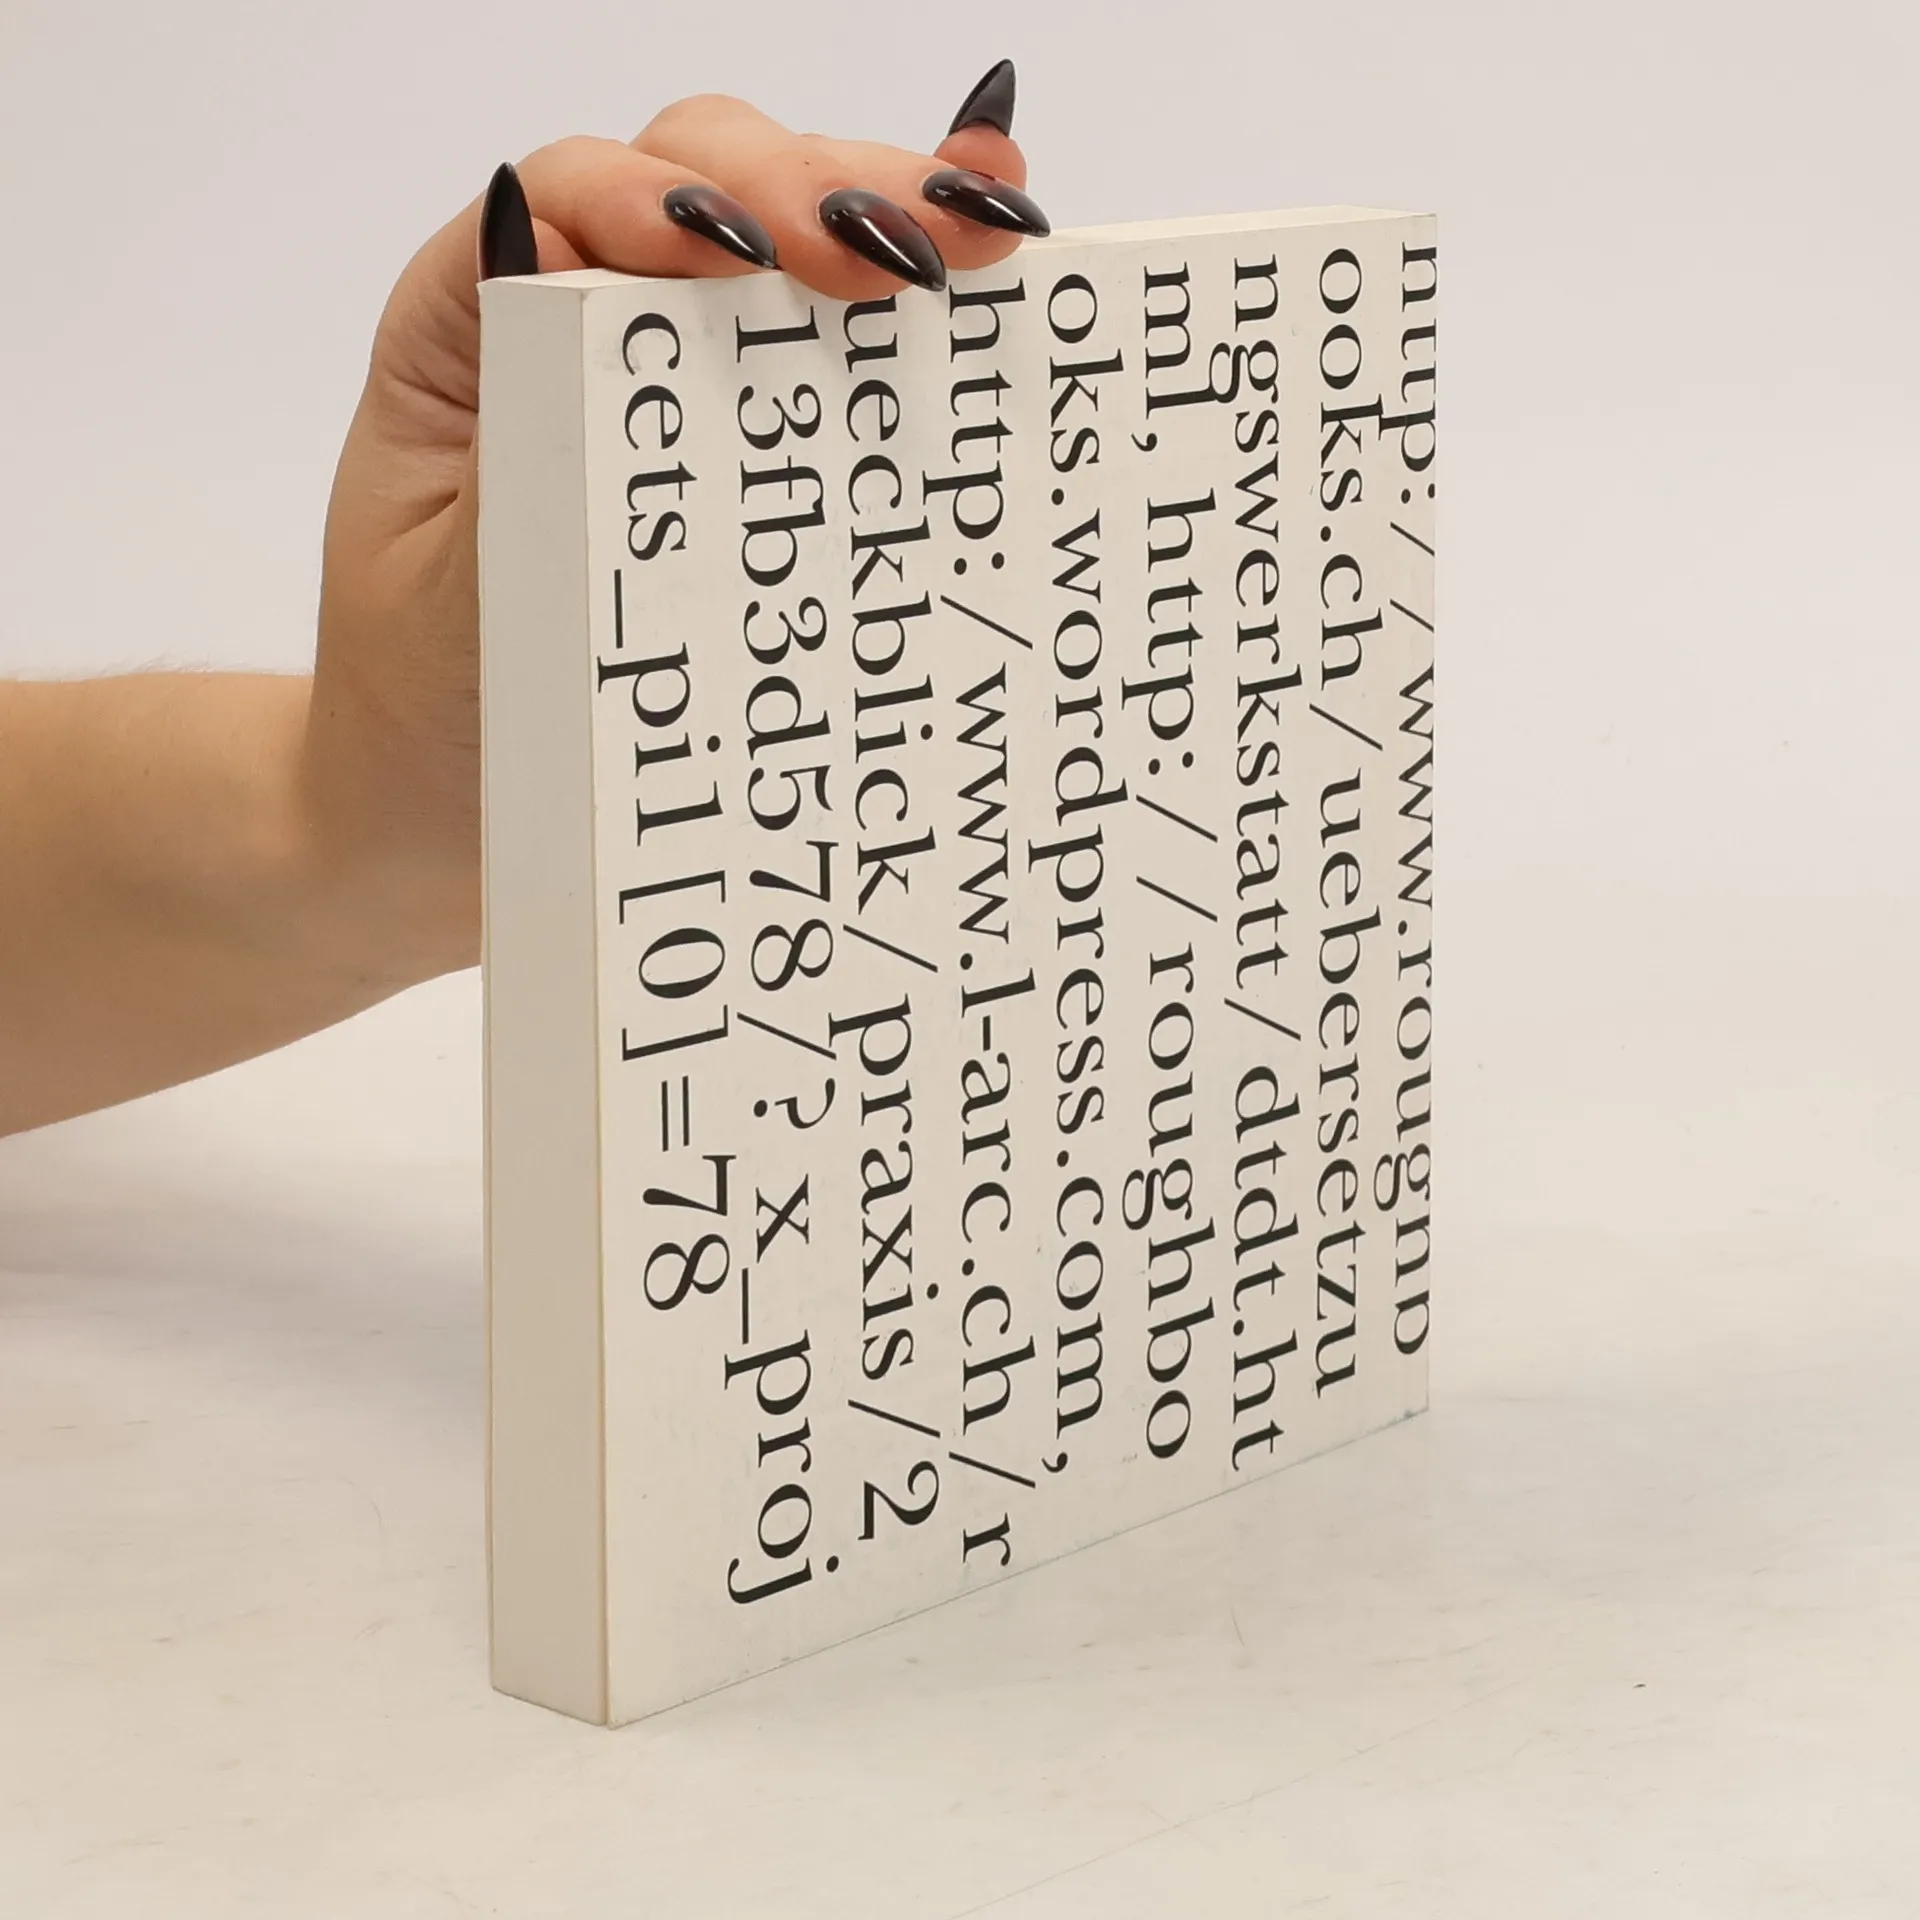 http://www.roughb
ooks.ch/uebersetzu
ngswerkstatt/dtdt.ht
ml, http://roughbo
oks.wordpress.com,
http://www.l-arc.ch/r
ueckblick/praxis/2
13fb3d578/?x_proj
cets_pi1[0]=78